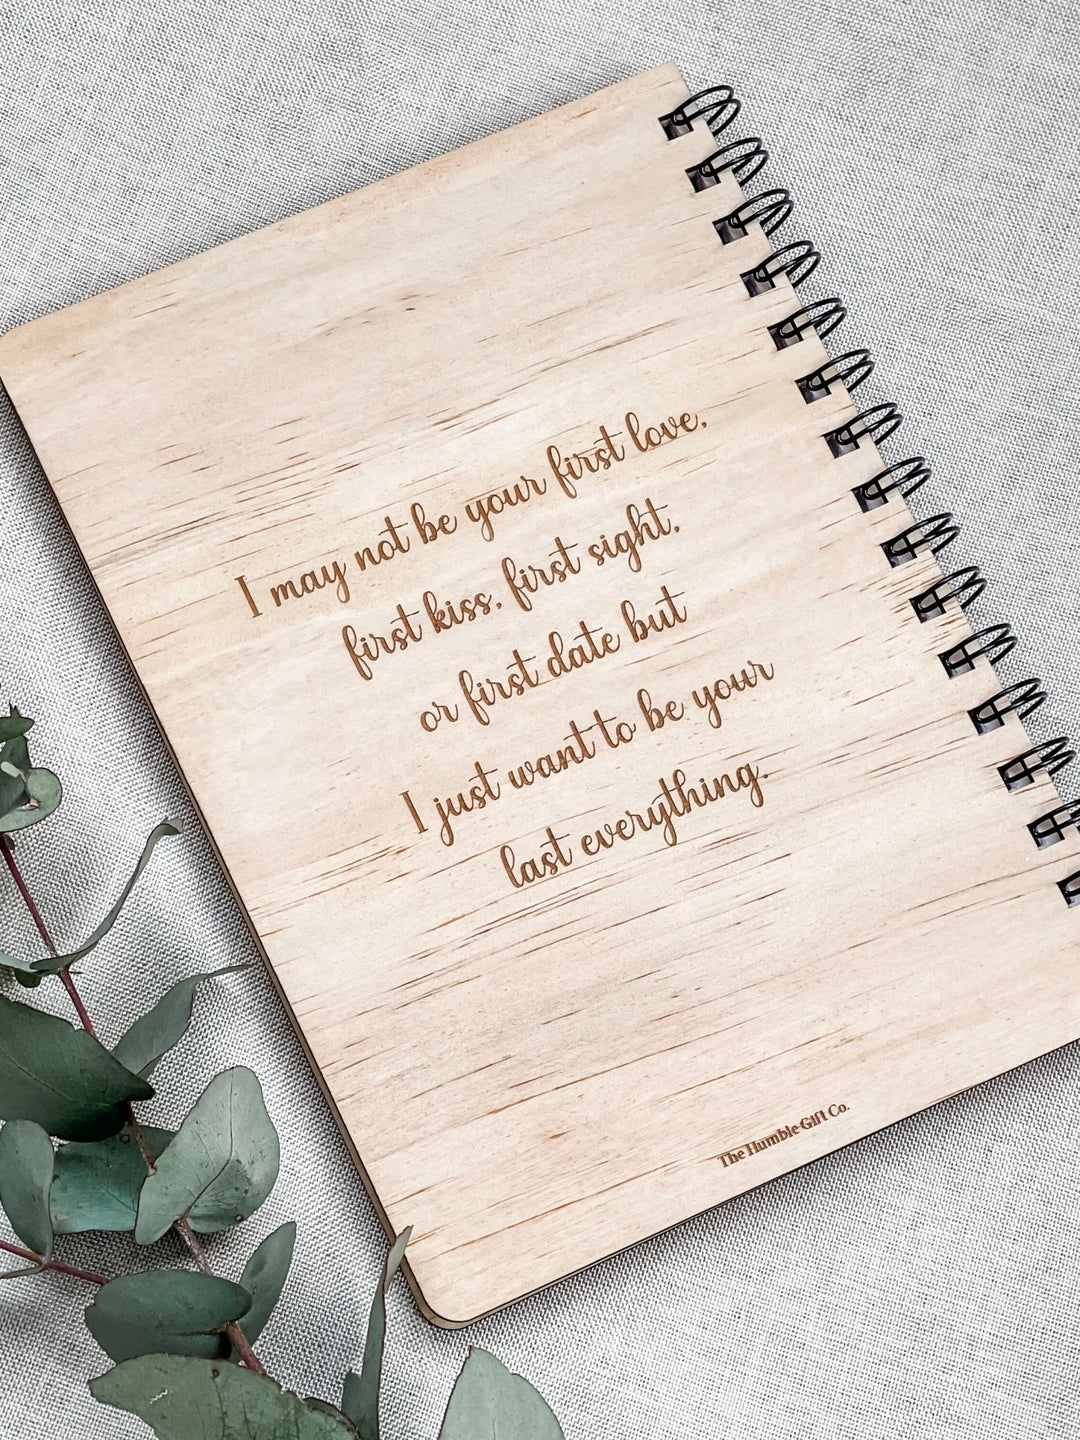 I may not be your first love,
first kiss, first sight,
or first date but
I just want to be your
last everything.
The Humble Gift Co.